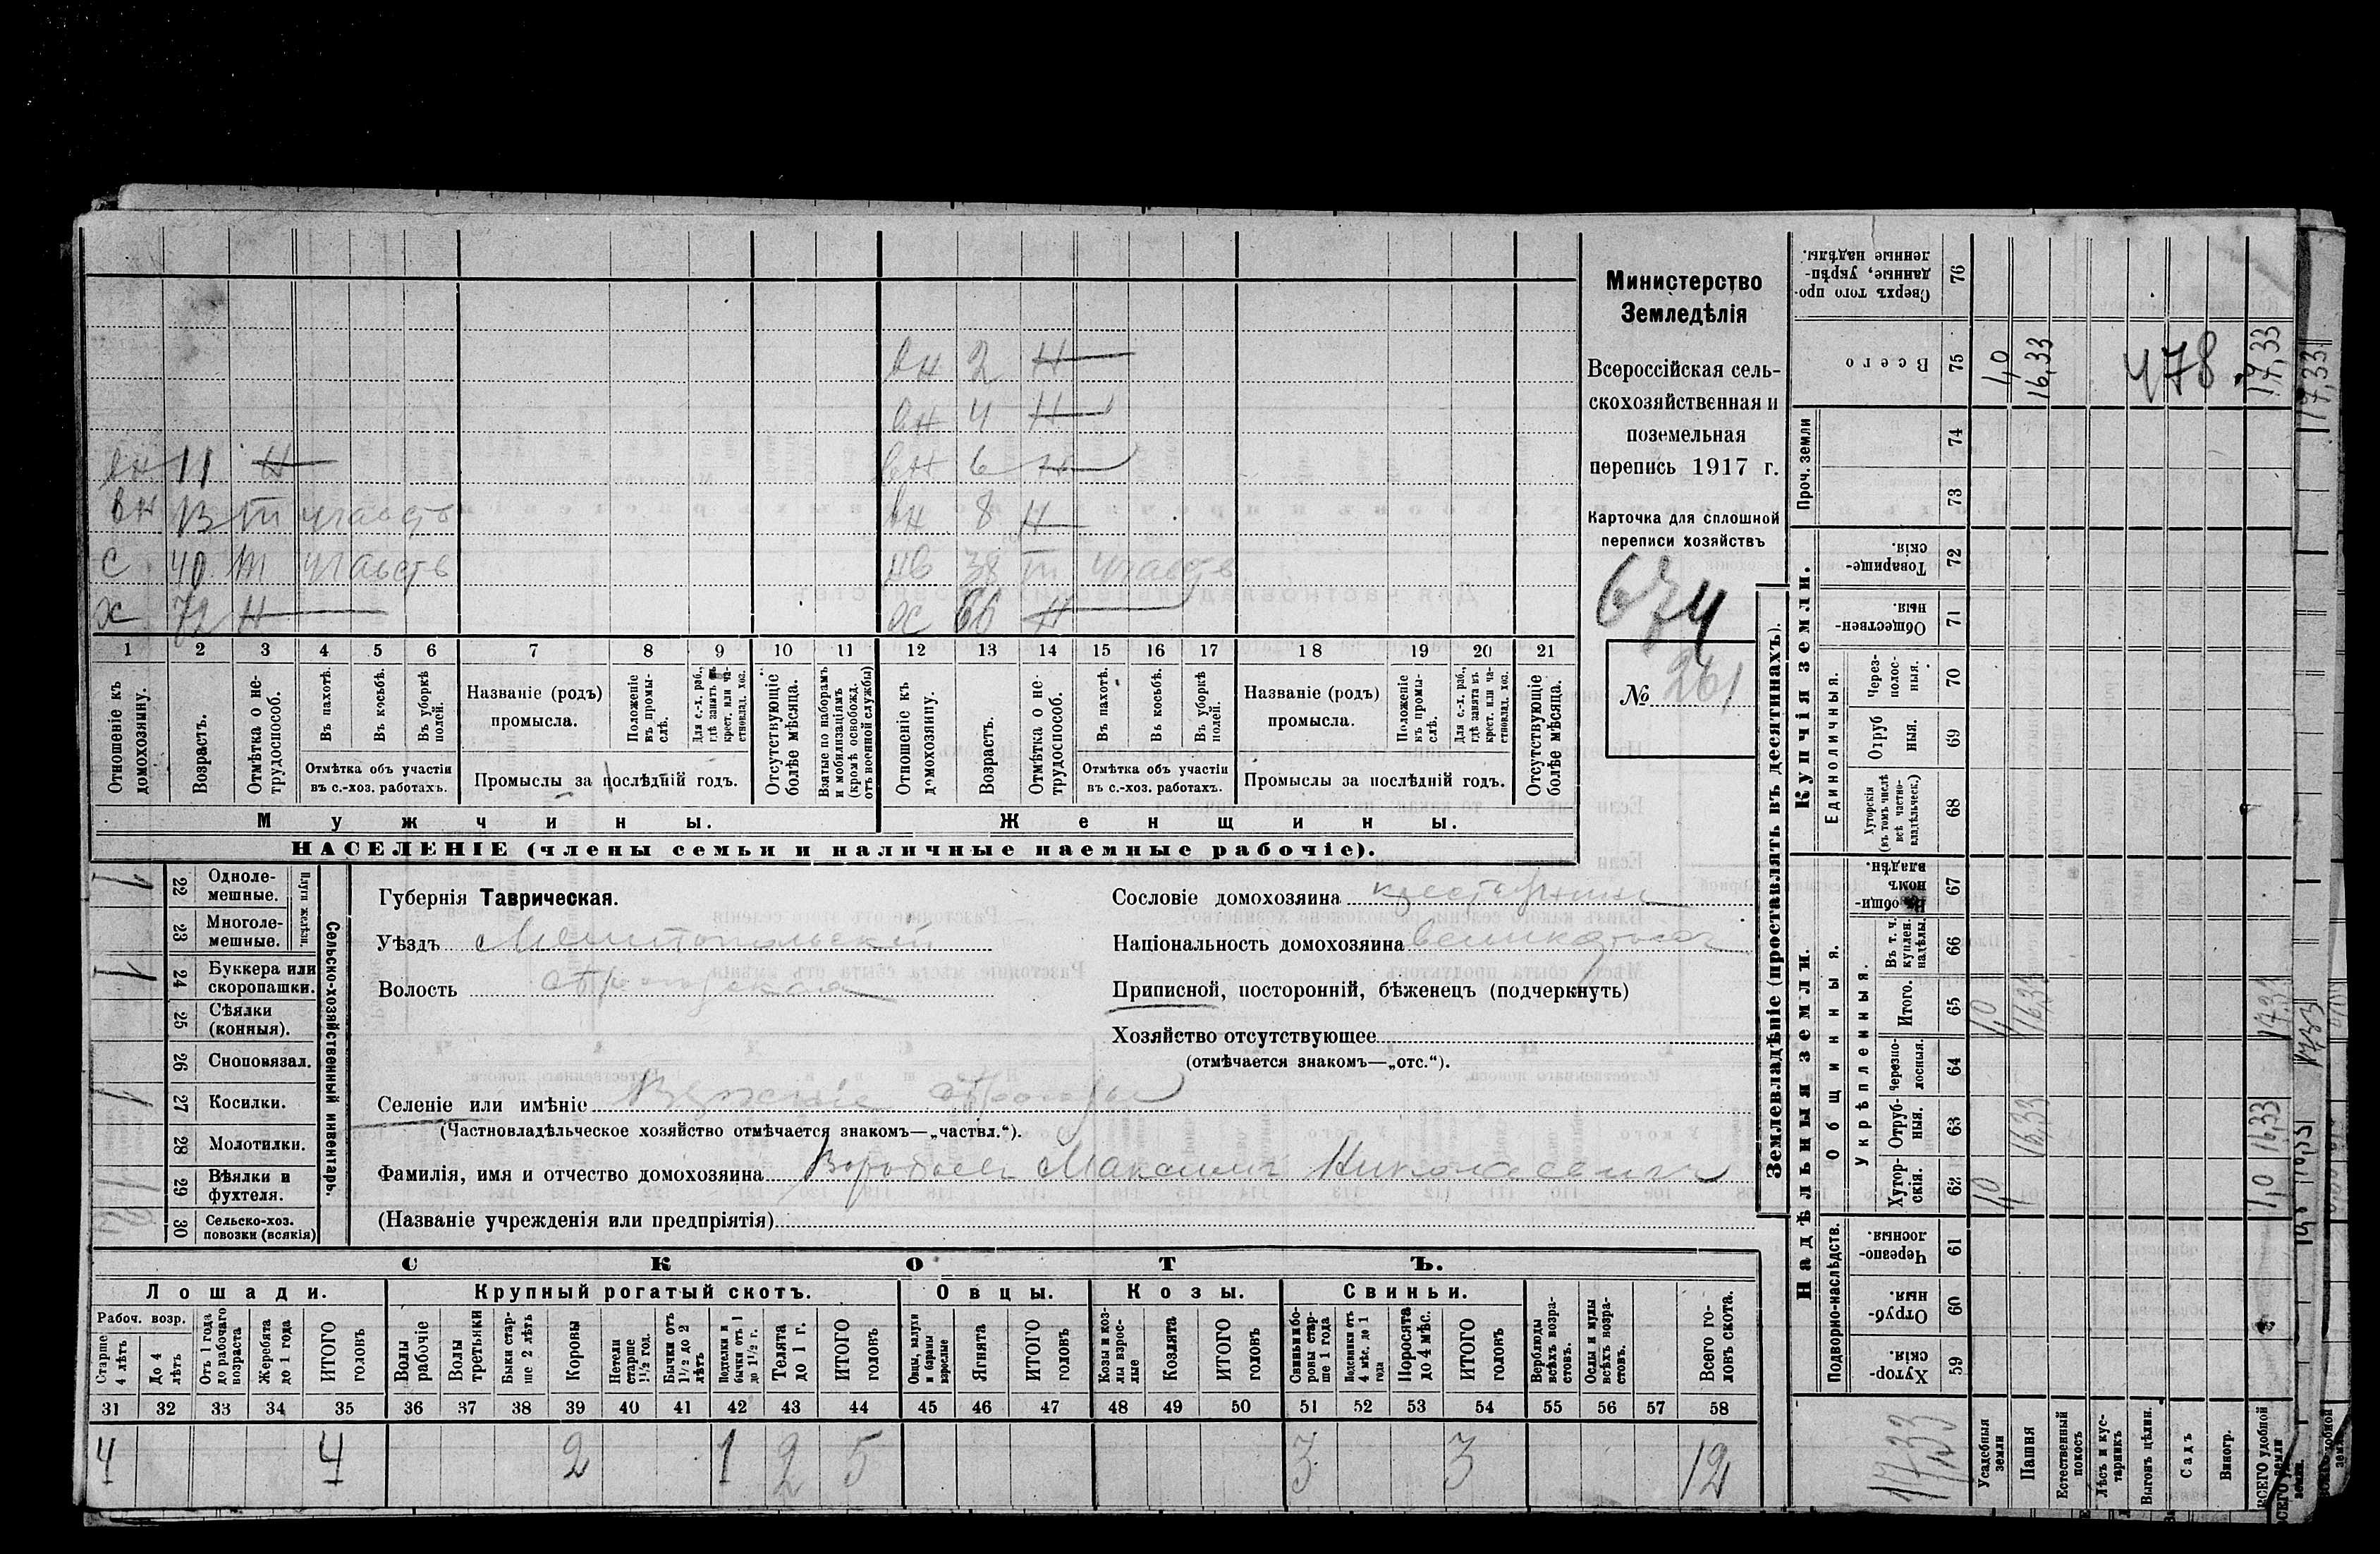 Министерство
Земледѣлія
Всероссійская сель-
скохозяйственная и
поземельная
перепись 1917 г.
Карточка для сплошной
переписи хозяйствъ
674
№ 261
вн 2 н
вн 4 н
вн 11 н вн 6 н
вн 13 п участв вн 8 н
с 40 участв 38 п участв
х 72 н х 66 н
1 2 3 4 5 6 7 8 9 10 11 12 13 14 15 16 17 18 19 20 21
Отношеніе къ домохозяину.
Возрастъ.
Отмѣтка о не-трудоспособ.
Въ пахотѣ.
Въ косьбѣ.
Въ уборкѣ полей.
Отмѣтка объ участіи
въ с.-хоз. работахъ.
Названіе (родъ)
промысла.
Положеніе въ промы-слѣ.
Для с.-х. раб., гдѣ занятъ въ крест. или ча-стновлад. хоз.
Промыслы за послѣдній годъ.
Отсутствующіе болѣе мѣсяца.
Взятые по наборамъ и мобилизаціямъ (кромѣ освобожд. отъ военной службы)
Отношеніе къ домохозяину.
Возрастъ.
Отмѣтка о не-трудоспособ.
Въ пахотѣ.
Въ косьбѣ.
Въ уборкѣ полей.
Отмѣтка объ участіи
въ с.-хоз. работахъ.
Названіе (родъ)
промысла.
Положеніе въ промы-слѣ.
Для с.-х. раб., гдѣ занята въ крест. или ча-стновлад. хоз.
Промыслы за послѣдній годъ.
Отсутствующіе болѣе мѣсяца.
Мужчины. Женщины.
НАСЕЛЕНІЕ (члены семьи и наличные наемные рабочіе).
Сельско-хозяйственный инвентарь.
Плуги желѣзн.
1 22 Одноле-мешные.
23 Многоле-мешные.
1 24 Буккера или скоропашки.
25 Сѣялки (конныя).
26 Сноповязал.
1 27 Косилки.
28 Молотилки.
1 29 Вѣялки и фухтеля.
2 30 Сельско-хоз. повозки (всякія)
Губернія Таврическая.
Уѣздъ Мелитопольскій
Волость
Сословіе домохозяина крестьянинъ
Національность домохозяина великороссъ
Приписной, посторонній, бѣженецъ (подчеркнуть)
Хозяйство отсутствующее
(отмѣчается знакомъ—„отс.“).
Селеніе или имѣніе
(Частновладѣльческое хозяйство отмѣчается знакомъ—„частвл.“).
Фамилія, имя и отчество домохозяина Воробьевъ Максимъ Николаевичъ
(Названіе учрежденія или предпріятія)
СКОТЪ.
Лошади. Крупный рогатый скотъ. Овцы. Козы. Свиньи.
Рабоч. возр.
Старше 4 лѣтъ
До 4 лѣтъ
Отъ 1 года до рабочаго возраста
Жеребята до 1 года
ИТОГО головъ
Волы рабочіе
Волы третьяки
Быки стар-ше 2 лѣтъ
Коровы
Нетели старше 1½ год.
Бычки отъ 1½ до 2 лѣтъ
Подтелки и бычки отъ 1 до 1½ г.
Телята до 1 г.
ИТОГО головъ
Овцы, валухи и бараны взрослые
Ягнята
ИТОГО головъ
Козы и коз-лы взрос-лые
Козлята
ИТОГО головъ
Свиньи бо-ровы стар-ше 1 года
Подсвинки отъ 4 мѣс. до 1 года
Поросята до 4 мѣс.
ИТОГО головъ
Верблюды всѣхъ возра-стовъ.
Ослы и мулы всѣхъ возра-стовъ.
Всего го-ловъ скота.
31 32 33 34 35 36 37 38 39 40 41 42 43 44 45 46 47 48 49 50 51 52 53 54 55 56 57 58
4 4 2 1 2 5 3 3 12
Землевладѣніе (проставлять въ десятинахъ).
Купчія земли.
Надѣльныя земли.
Проч. земли
Единоличныя.
Общинныя.
Укрѣпленныя.
Подворно-наслѣдств.
Сверхъ того про-данные, укрѣп-ленные надѣлы. 76
Всего 75 1,0 16,33 478 17,33
74
73
Товарище-скія. 72
Обществен-ныя. 71
Черезполос-ныя. 70
Отруб ныя. 69
Хуторскія (въ томъ числѣ всѣ частно-владѣльческ.) 68
Въ общин-номъ владѣн. 67
Въ т. ч. куплен. надѣлы 66
Итого. 65 1,0 16,33 17,33
Черезпо-лосныя. 64
Отруб-ныя. 63 16,33 16,33
Хутор-скія. 62 1,0 1,0
Черезпо-лосныя. 61
Отруб-ныя 60
Хутор-скія. 59
17,33
Усадебныя земли
Пашня
Естественный покосъ
Лѣсъ и кус-тарникъ
Выгонъ цѣлин.
Садъ
Виногр.
ВСЕГО удобной земли
17,33